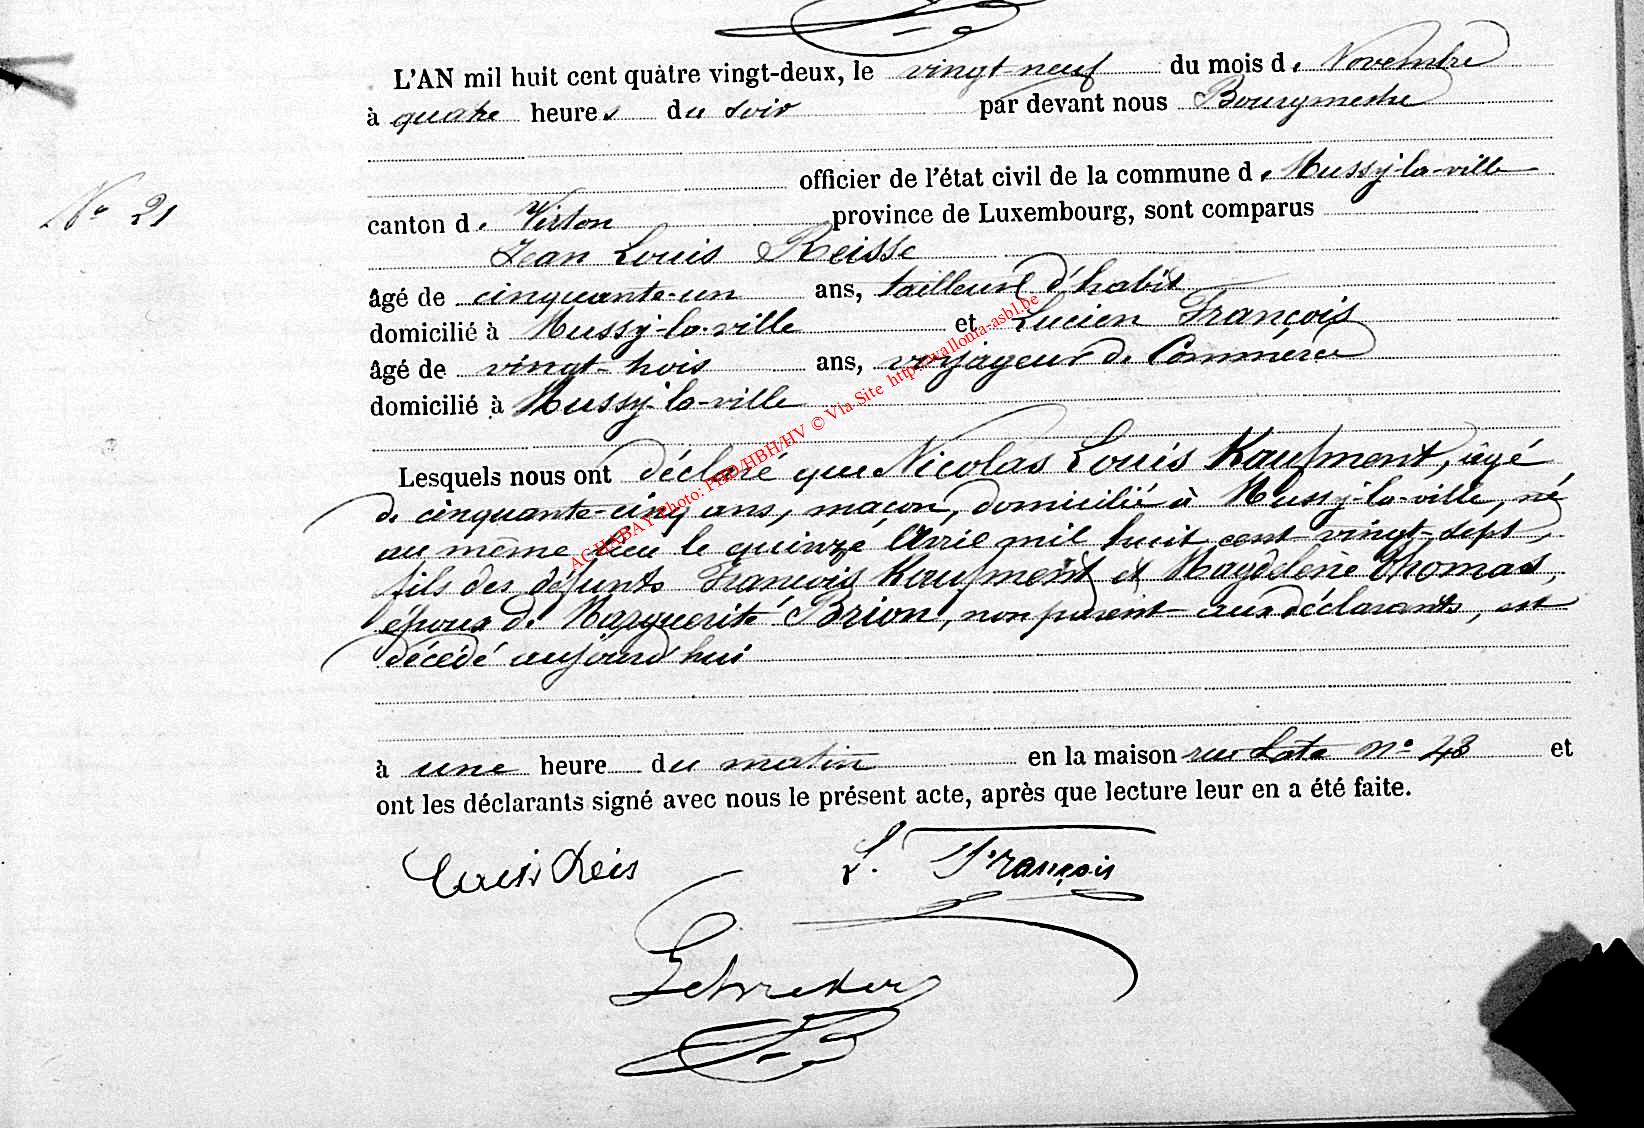 L'AN mil huit cent quatre vingt-deux, le vingt-neuf du mois de Novembre
à quatre heures du soir par devant nous Bourgmestre
officier de l'état civil de la commune de Mussy-la-ville
N° 21
canton de Virton province de Luxembourg, sont comparus
Jean Louis Reisse
âgé de cinquante-un ans, tailleur d'habit
domicilié à Mussy-la-ville et Lucien François
âgé de vingt-trois ans, voyageur de Commerce
domicilié à Mussy-la-ville
Lesquels nous ont déclaré que Nicolas Louis Kaufment, âgé
de cinquante-cinq ans, maçon, domicilié à Mussy-la-ville, né
au même lieu le quinze Avril mil huit cent vingt-sept,
fils des défunts François Kaufment et Magdeleine Thomas,
époux de Marguerite Brion, non parent aux déclarants, est
décédé aujourd'hui
à une heure du matin en la maison rue n° 43 et
ont les déclarants signé avec nous le présent acte, après que lecture leur en a été faite.
Louis Reis L. François
AGHABAY Photo: PHD/HBH/HV © Via Site http://wallonia-asbl.be